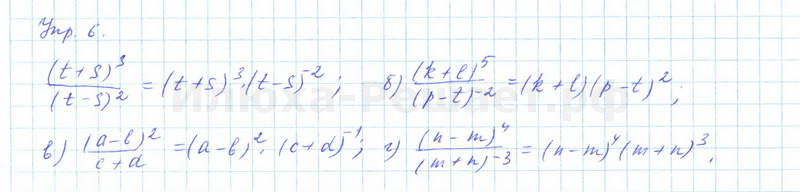 Упр. 6.
(t+s)³/(t-s)² = (t+s)³·(t-s)⁻²; б) (k+l)⁵/(p-t)⁻² = (k+l)(p-t)²;
в) (a-b)²/c+d = (a-b)²·(c+d)⁻¹; г) (n-m)⁴/(m+n)⁻³ = (n-m)⁴(m+n)³.
илюха-Решает.рф